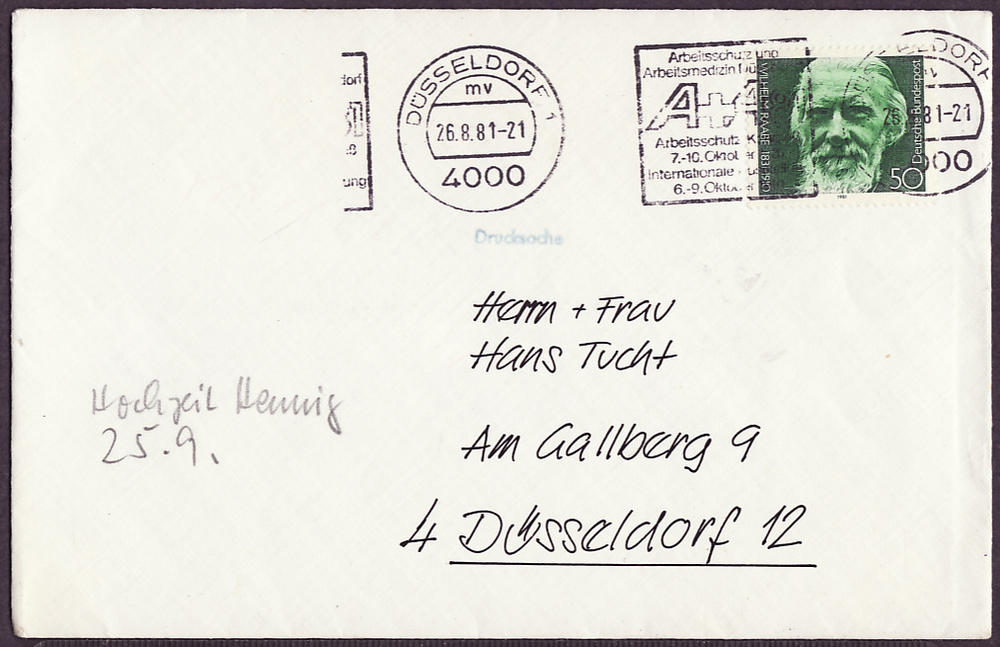 dorf
ung
DÜSSELDORF 1
mv
26.8.81-21
4000
Arbeitsschutz und
Arbeitsmedizin Dü
A+A
Arbeitsschutz K
7.-10. Oktober
Internationale
6.-9. Oktober
WILHELM RAABE 1831-1910
Deutsche Bundespost
50
1981
81-21
Drucksache
Herrn + Frau
Hans Tucht
Am Gallberg 9
4 Düsseldorf 12
Hochzeit Hennig
25.9.